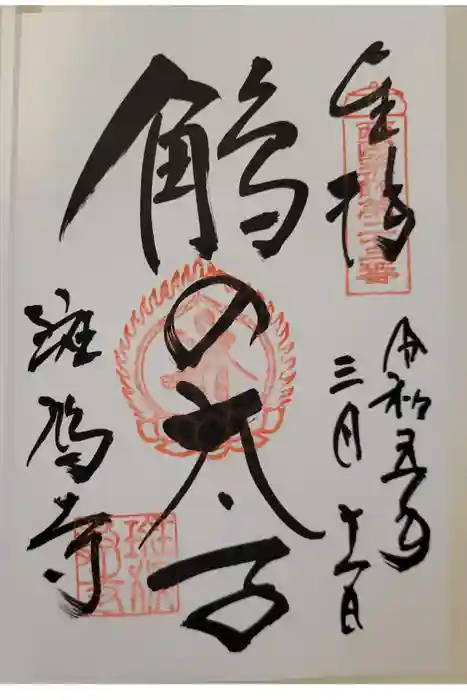 奉拝
令和五年
三月十一日
鵤の太子
斑鳩寺